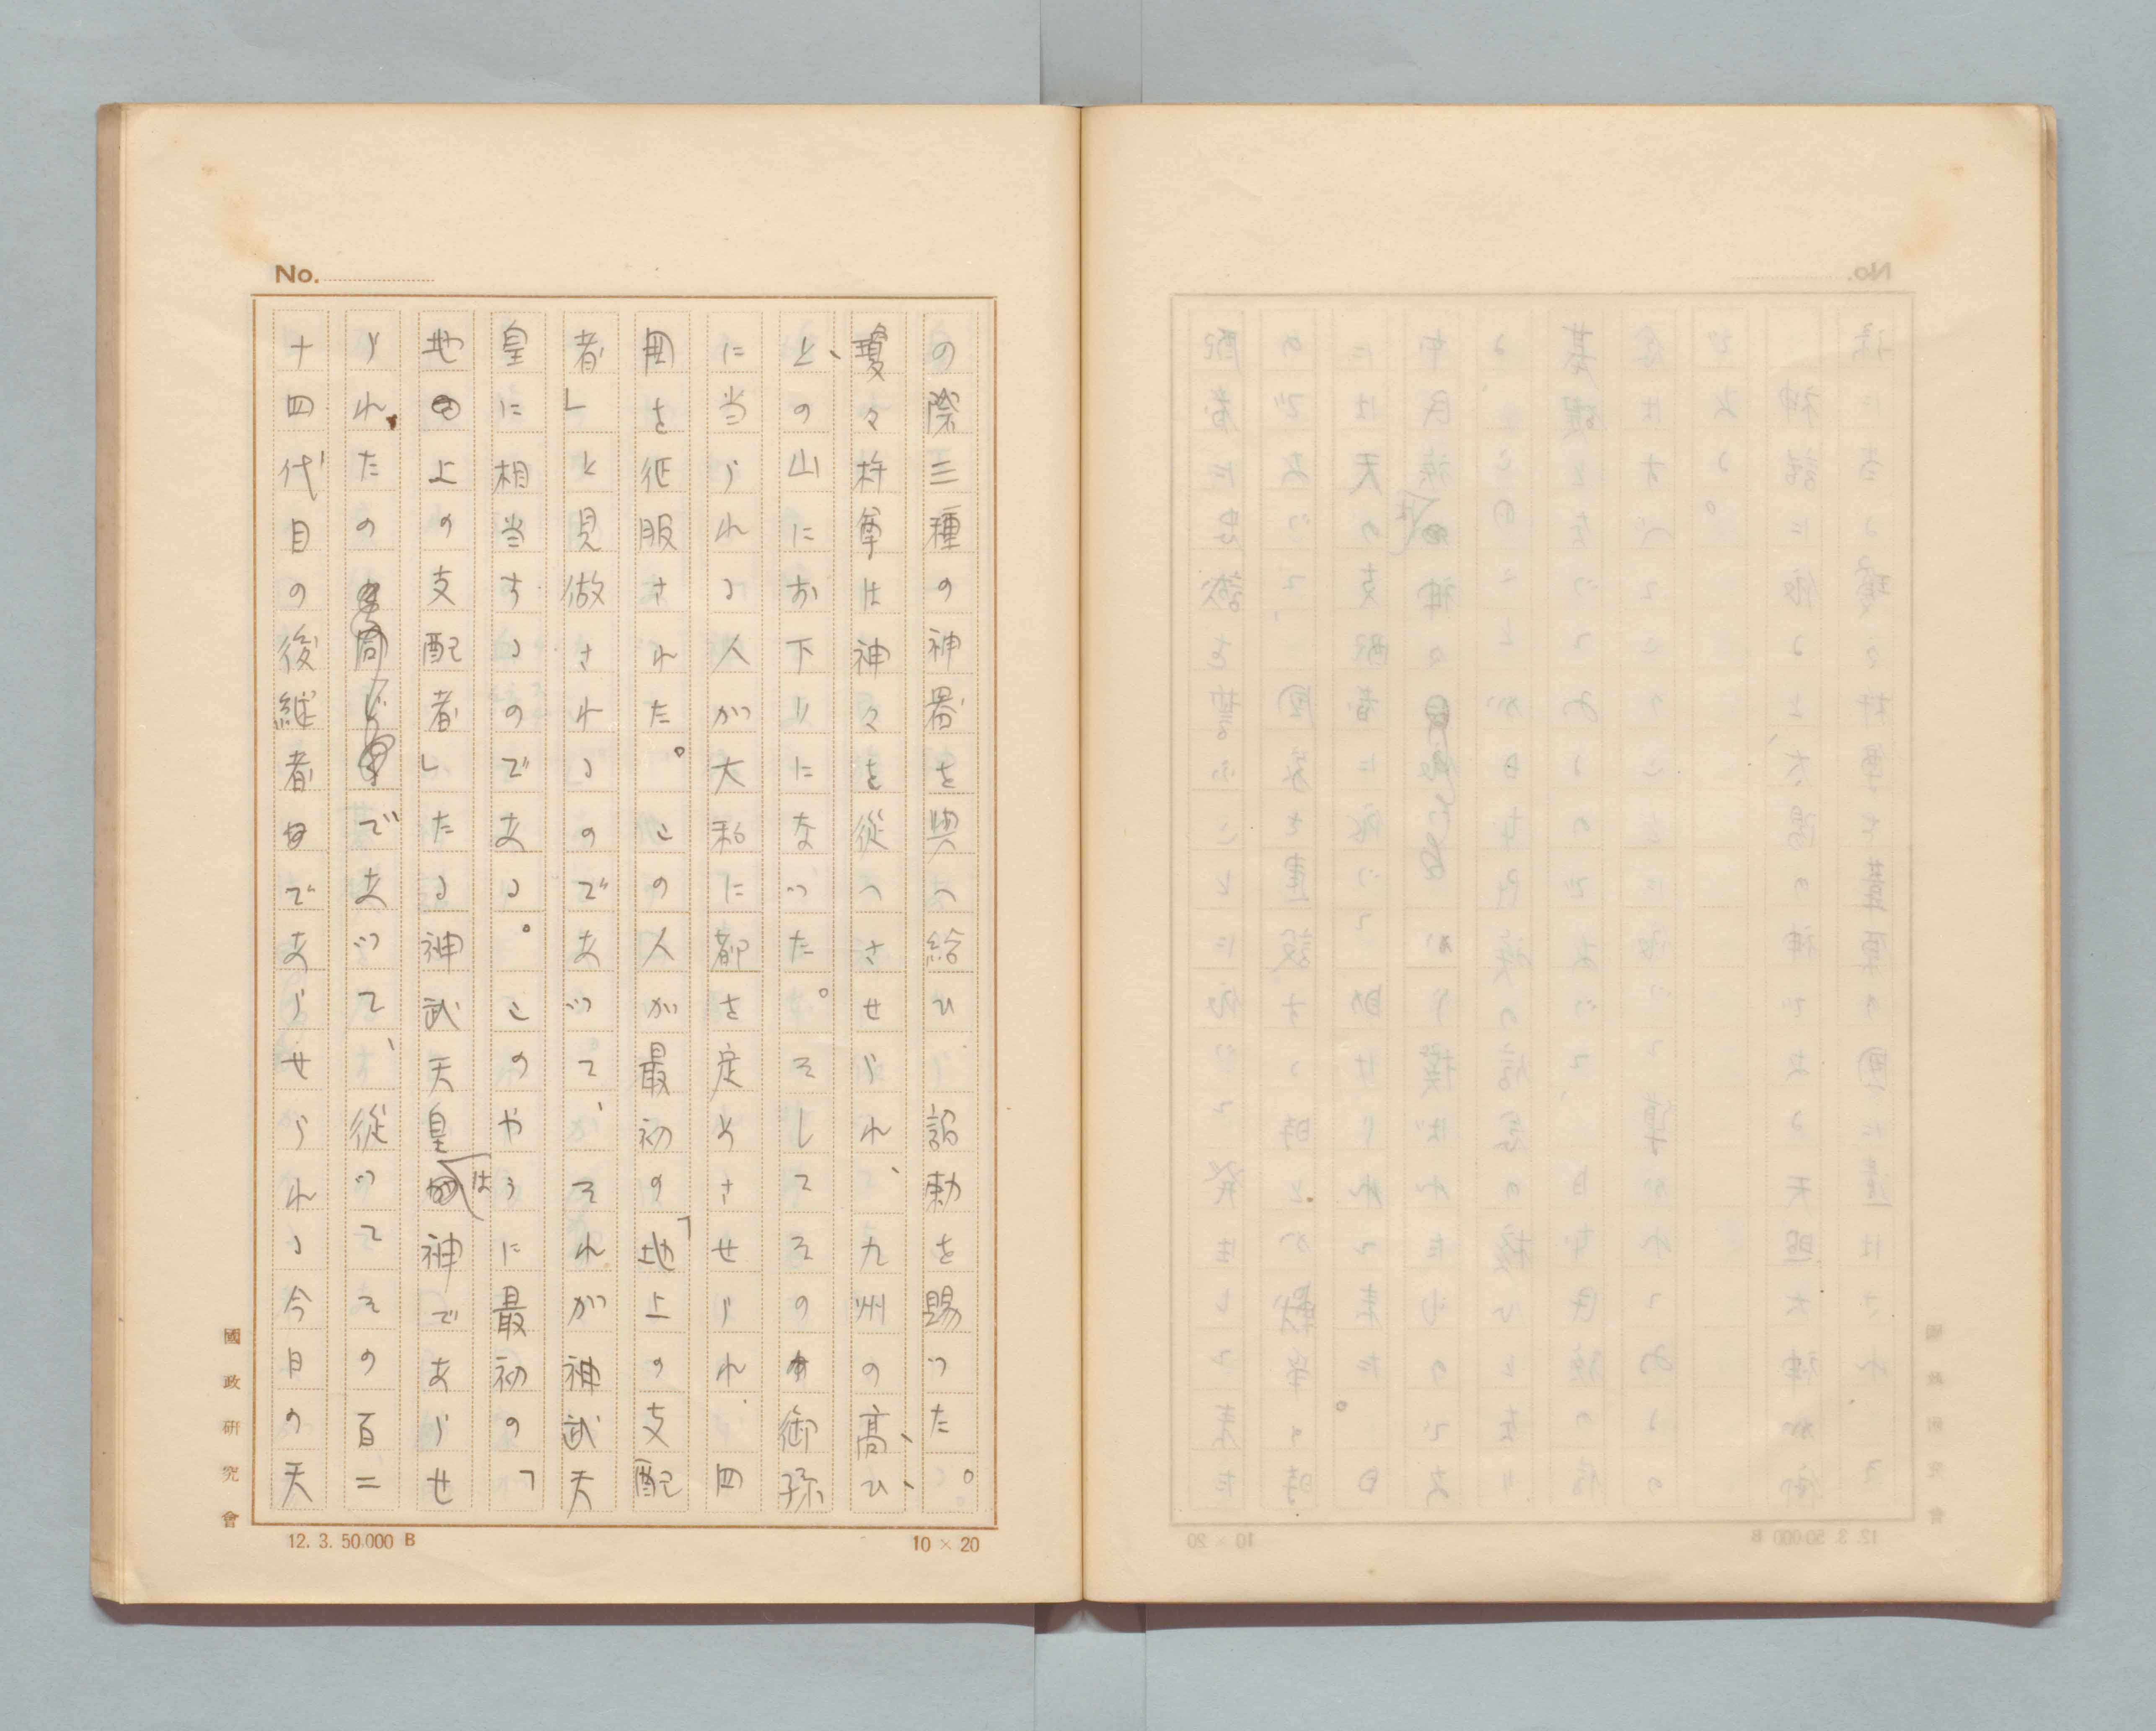 No.
の際三種の神器を與へ給ひ 詔勅を賜つた。
瓊々杵尊は神々を從へさせられ、九州の高ひ
との山にお下りになつた。そしてその御孫
に当られる人が大和に都を定めさせられ、四
囲を征服された。この人が最初の「地上の支配
者」と見做されるのであつて、それが神武天
皇に相当するのである。このやうに最初の「
地の上の支配者」たる神武天皇は神であらせ
られたのであつて、從つてその百二
十四代目の後継者であらせられる今日の天
國政研究會
12. 3. 50.000 B
10 × 20